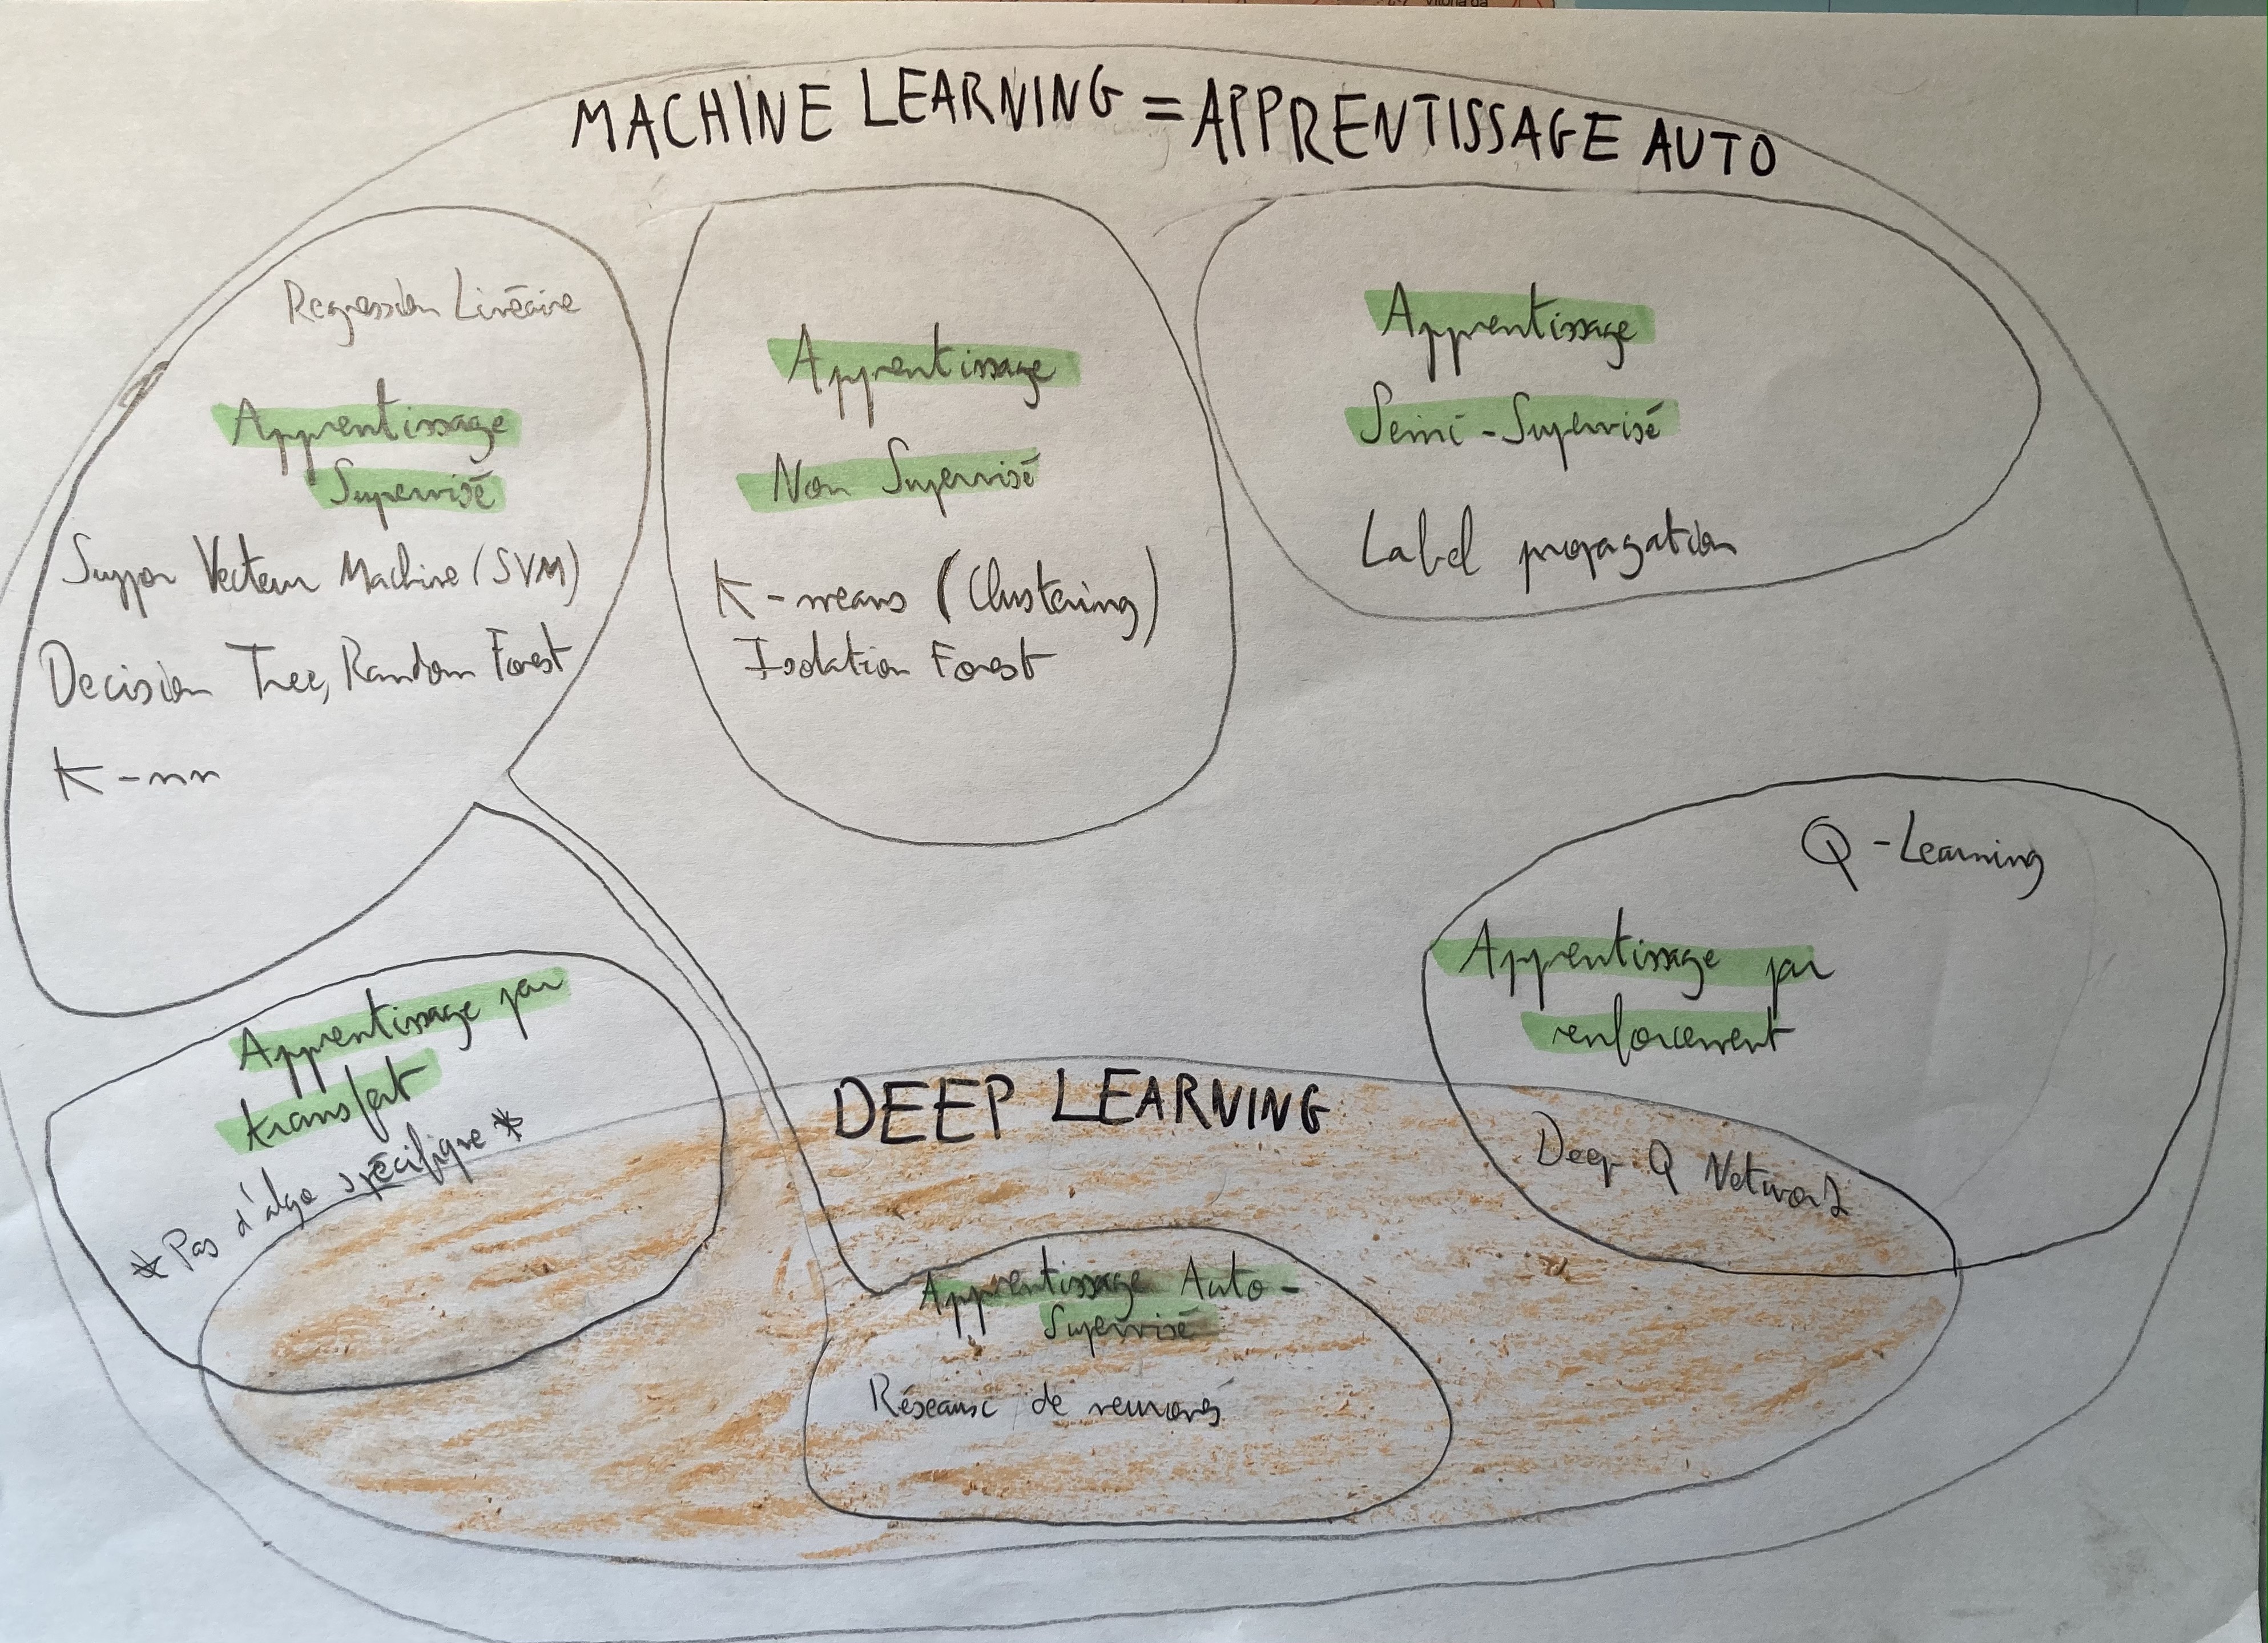 Vitória da
MACHINE LEARNING = APPRENTISSAGE AUTO
Regression Linéaire
Apprentissage
Supervisé
Suppor Vecteur Machine (SVM)
Decision Tree, Random Forest
K-nn
Apprentissage
Non Supervisé
K-means (Clustering)
Isolation Forest
Apprentissage
Semi-Supervisé
Label propagation
Q-Learning
Apprentissage par
renforcement
Deep Q Network
Apprentissage par
transfert
*Pas d'algo spécifique*
DEEP LEARNING
Apprentissage Auto-
Supervisé
Réseaux de neurones